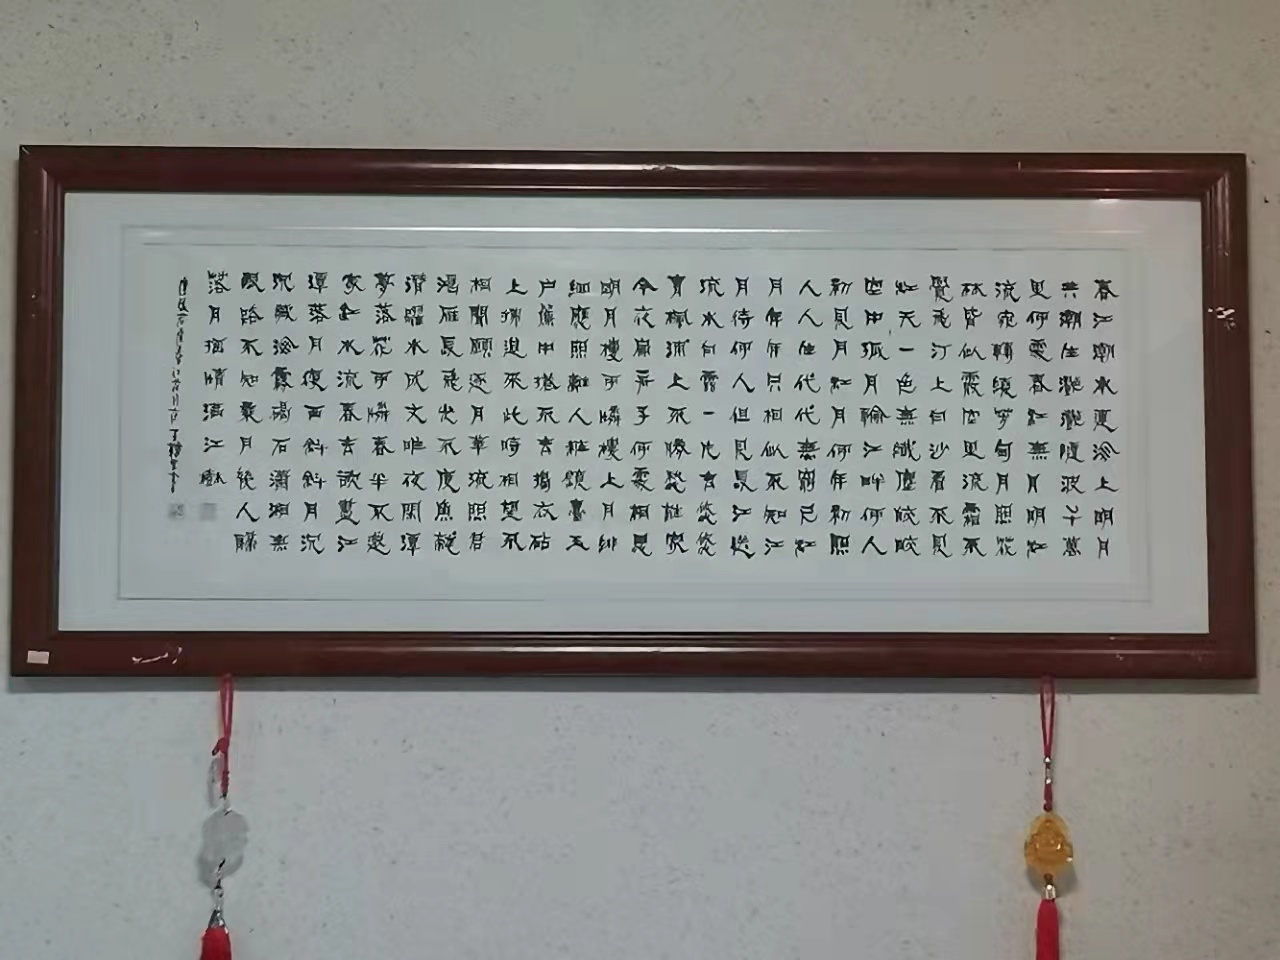 春江潮水連海上明月
共潮生灩灩隨波千萬
里何處春江無月明江
流宛轉繞芳甸月照花
林皆似霰空里流霜不
覺飛汀上白沙看不見
江天一色無纖塵皎皎
空中孤月輪江畔何人
初見月江月何年初照
人人生代代無窮已江
月年年只相似不知江
月待何人但見長江送
流水白雲一片去悠悠
青楓浦上不勝愁誰家
今夜扁舟子何處相思
明月樓可憐樓上月徘
徊應照離人妝鏡臺玉
戶簾中捲不去搗衣砧
上拂還來此時相望不
相聞願逐月華流照君
鴻雁長飛光不度魚龍
潛躍水成文昨夜閑潭
夢落花可憐春半不還
家江水流春去欲盡江
潭落月復西斜斜月沉
沉藏海霧碣石瀟湘無
限路不知乘月幾人歸
落月搖情滿江樹